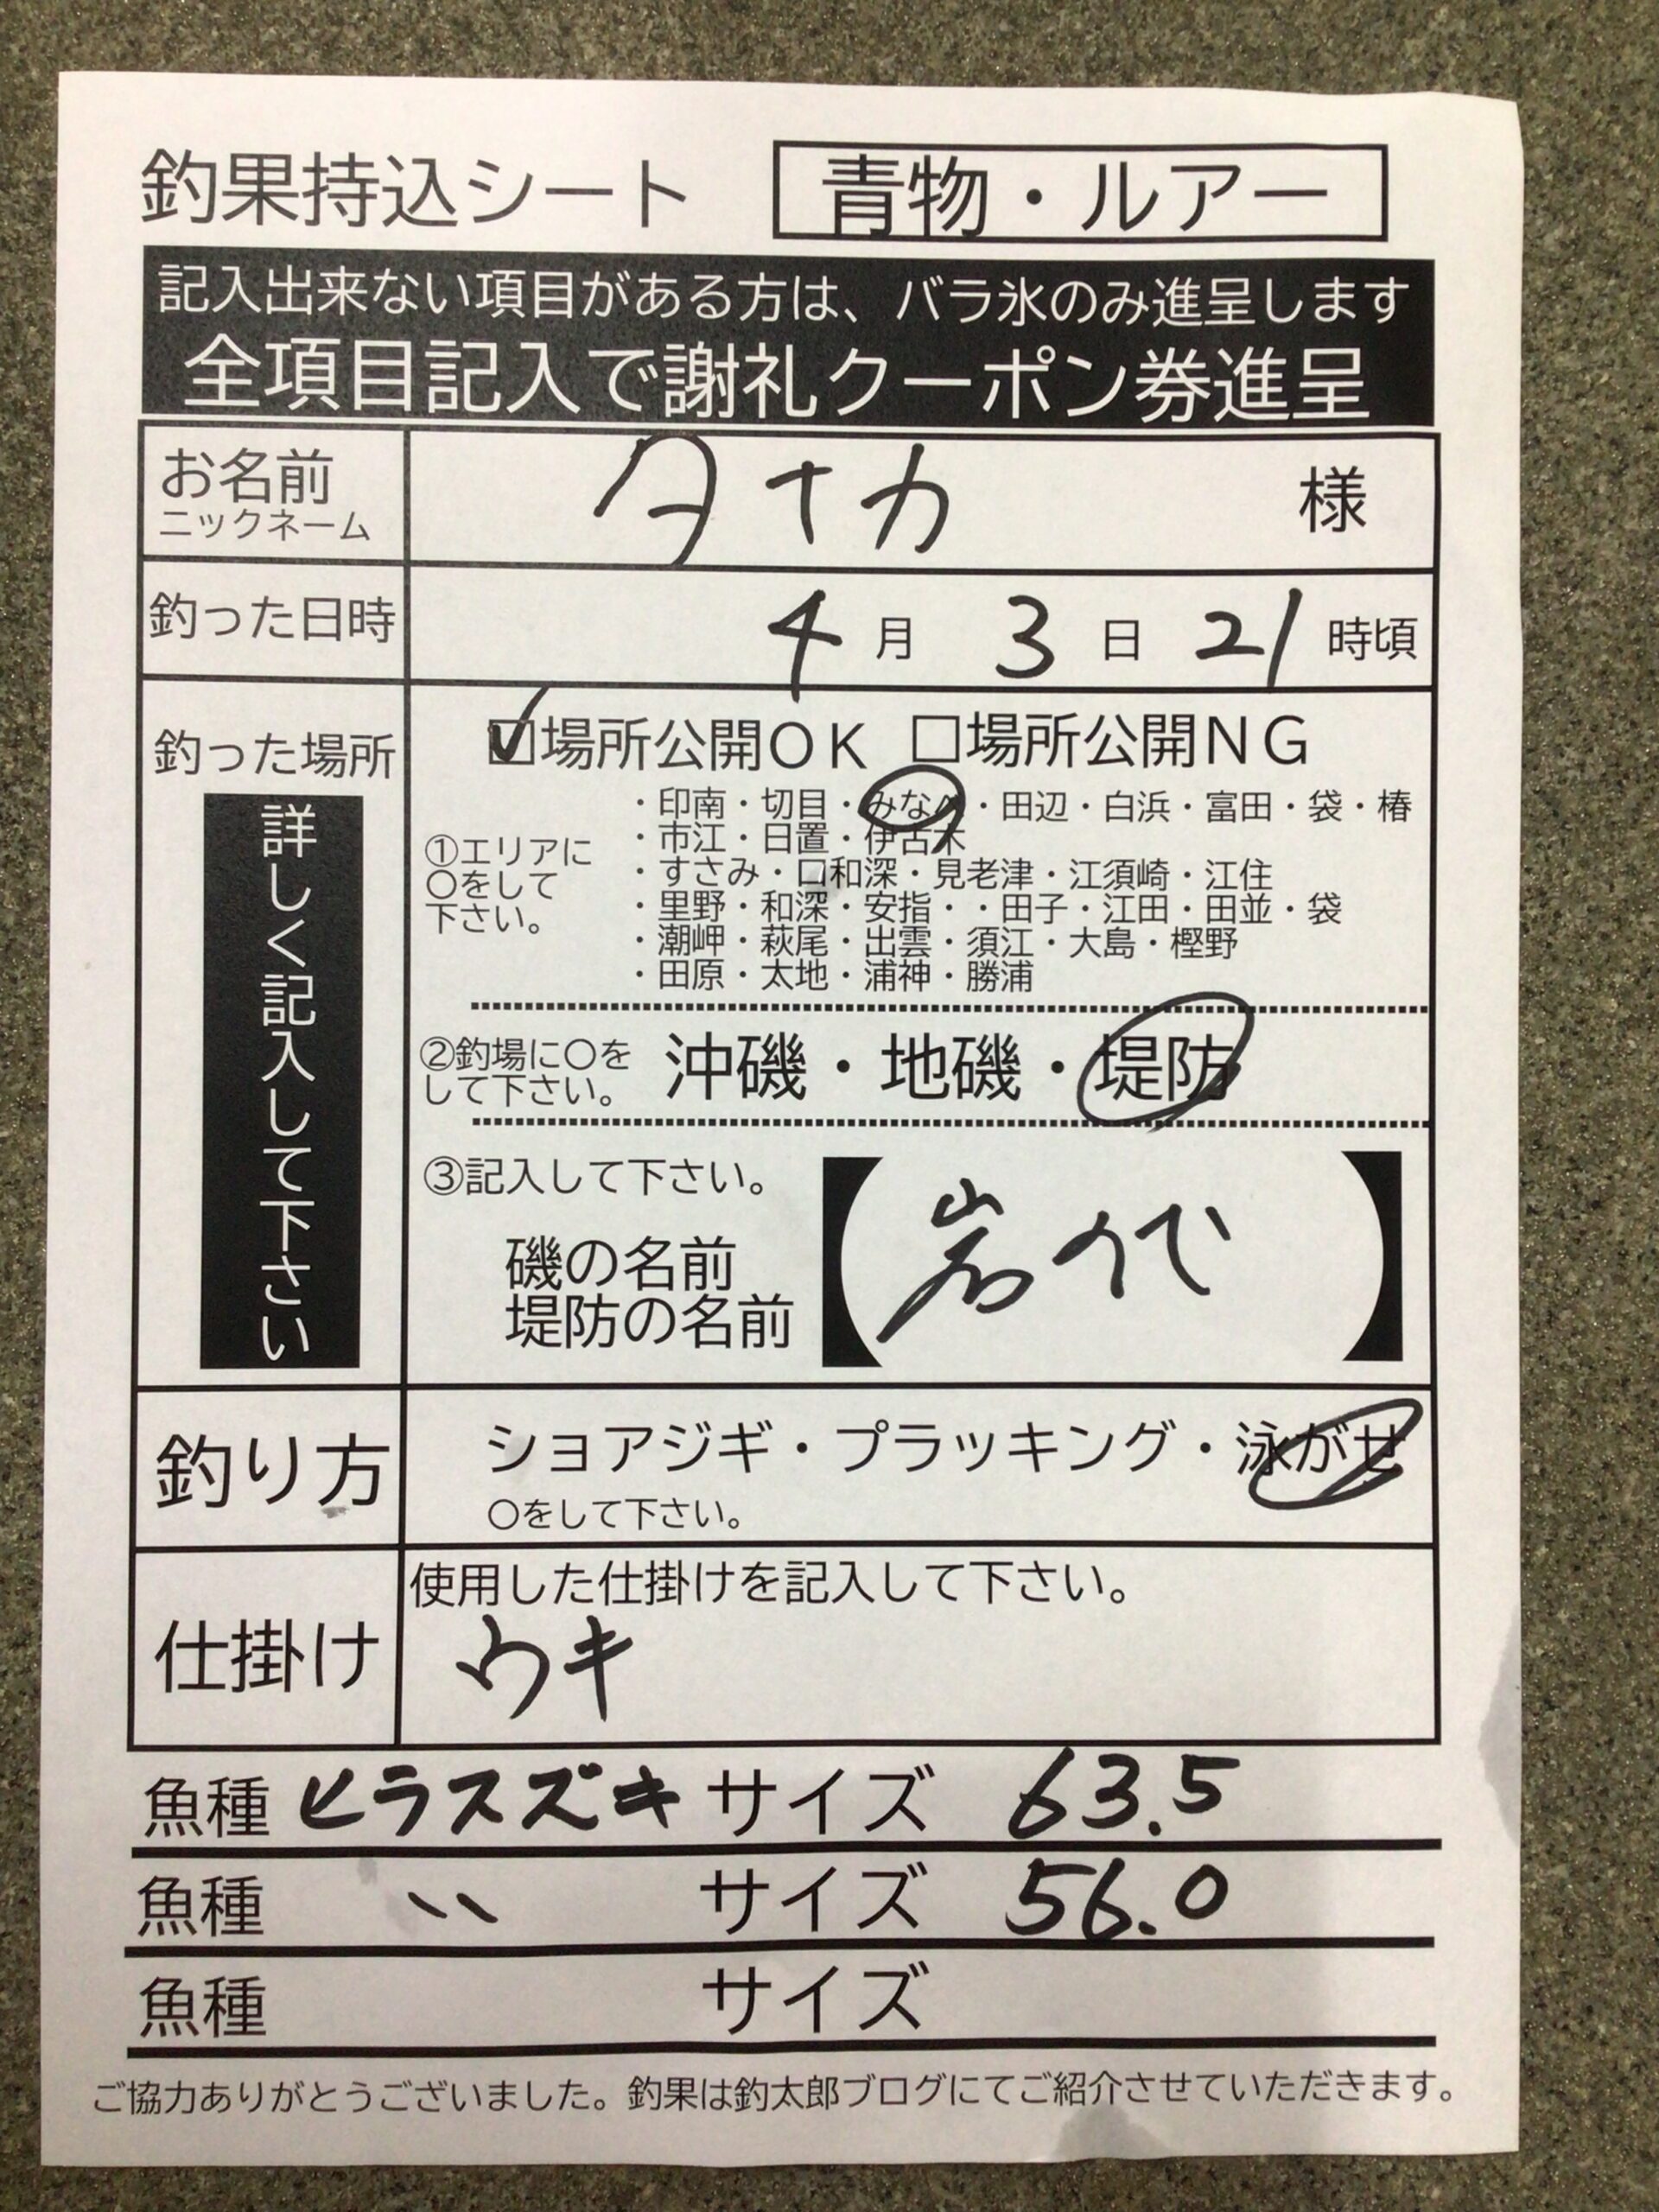 釣果持込シート 青物・ルアー
記入出来ない項目がある方は、バラ氷のみ進呈します
全項目記入で謝礼クーポン券進呈
お名前
ニックネーム
タナカ 様
釣った日時 4月 3日 21時頃
釣った場所
詳しく記入して下さい
☑場所公開OK □場所公開NG
①エリアに
〇をして
下さい。
・印南・切目・みなべ・田辺・白浜・富田・袋・椿
・市江・日置・伊古木
・すさみ・口和深・見老津・江須崎・江住
・里野・和深・安指・・田子・江田・田並・袋
・潮岬・萩尾・出雲・須江・大島・樫野
・田原・太地・浦神・勝浦
②釣場に〇を
して下さい。
沖磯・地磯・堤防
③記入して下さい。
磯の名前
堤防の名前
【岩代】
釣り方 ショアジギ・プラッキング・泳がせ
〇をして下さい。
仕掛け
使用した仕掛けを記入して下さい。
ウキ
魚種 ヒラスズキ サイズ 63.5
魚種 〃 サイズ 56.0
魚種 サイズ
ご協力ありがとうございました。釣果は釣太郎ブログにてご紹介させていただきます。